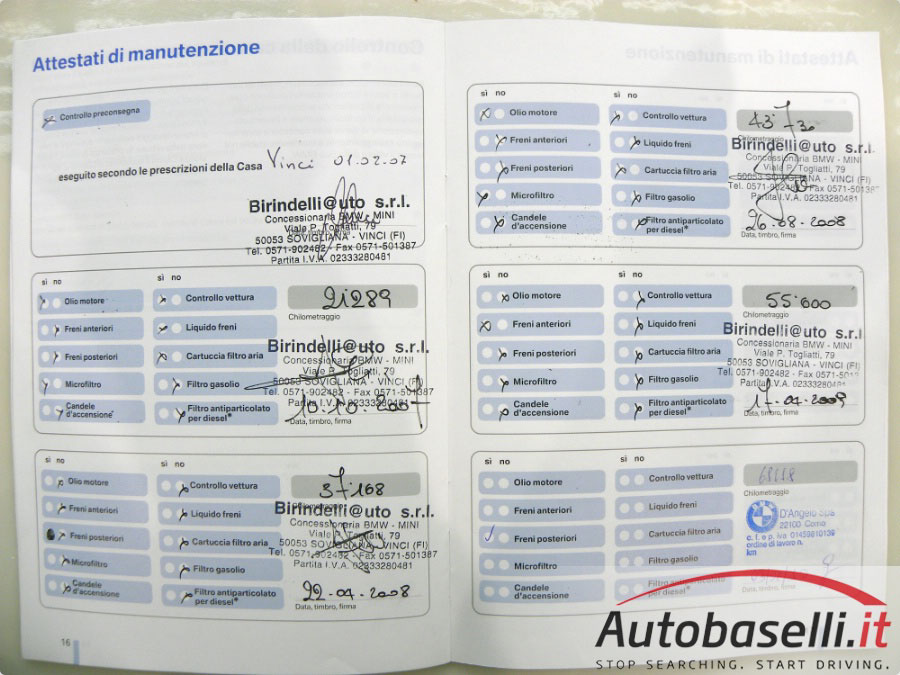 Attestati di manutenzione
Controllo preconsegna
eseguito secondo le prescrizioni della Casa Vinci 01.02.07
Birindelli@uto s.r.l.
Concessionaria BMW - MINI
Viale P. Togliatti, 79
50053 SOVIGLIANA - VINCI (FI)
Tel. 0571-902482 - Fax 0571-501387
Partita I.V.A. 02333280481
sì no
sì no
Olio motore
Controllo vettura
Freni anteriori
Liquido freni
Freni posteriori
Cartuccia filtro aria
Microfiltro
Filtro gasolio
Candele
d'accensione
Filtro antiparticolato
per diesel*
21289
Chilometraggio
Birindelli@uto s.r.l.
Concessionaria BMW - MINI
Viale P. Togliatti, 79
50053 SOVIGLIANA - VINCI (FI)
Tel. 0571-902482 - Fax 0571-501387
Partita I.V.A. 02333280481
10.10.2007
Data, timbro, firma
sì no
sì no
Olio motore
Controllo vettura
Freni anteriori
Liquido freni
Freni posteriori
Cartuccia filtro aria
Microfiltro
Filtro gasolio
Candele
d'accensione
Filtro antiparticolato
per diesel*
37168
Chilometraggio
Birindelli@uto s.r.l.
Concessionaria BMW - MINI
Viale P. Togliatti, 79
50053 SOVIGLIANA - VINCI (FI)
Tel. 0571-902482 - Fax 0571-501387
Partita I.V.A. 02333280481
22.04.2008
Data, timbro, firma
16
sì no
sì no
Olio motore
Controllo vettura
Freni anteriori
Liquido freni
Freni posteriori
Cartuccia filtro aria
Microfiltro
Filtro gasolio
Candele
d'accensione
Filtro antiparticolato
per diesel*
43730
Chilometraggio
Birindelli@uto s.r.l.
Concessionaria BMW - MINI
Viale P. Togliatti, 79
50053 SOVIGLIANA - VINCI (FI)
Tel. 0571-902482 - Fax 0571-50138
Partita I.V.A. 02333280481
26.08.2008
Data, timbro, firma
sì no
sì no
Olio motore
Controllo vettura
Freni anteriori
Liquido freni
Freni posteriori
Cartuccia filtro aria
Microfiltro
Filtro gasolio
Candele
d'accensione
Filtro antiparticolato
per diesel*
55.600
Chilometraggio
Birindelli@uto s.r.l.
Concessionaria BMW - MINI
Viale P. Togliatti, 79
50053 SOVIGLIANA - VINCI (FI)
Tel. 0571-902482 - Fax 0571-501
Partita I.V.A. 02333280481
17.04.2009
Data, timbro, firma
sì no
sì no
Olio motore
Controllo vettura
Freni anteriori
Liquido freni
Freni posteriori
Cartuccia filtro aria
Microfiltro
Filtro gasolio
Candele
d'accensione
Filtro antiparticolato
per diesel*
Chilometraggio
BMW
D'Angelo Spa
22100 Como
c. f. e p. iva 01459810139
ordine di lavoro n.
km
Autobaselli.it
STOP SEARCHING. START DRIVING.